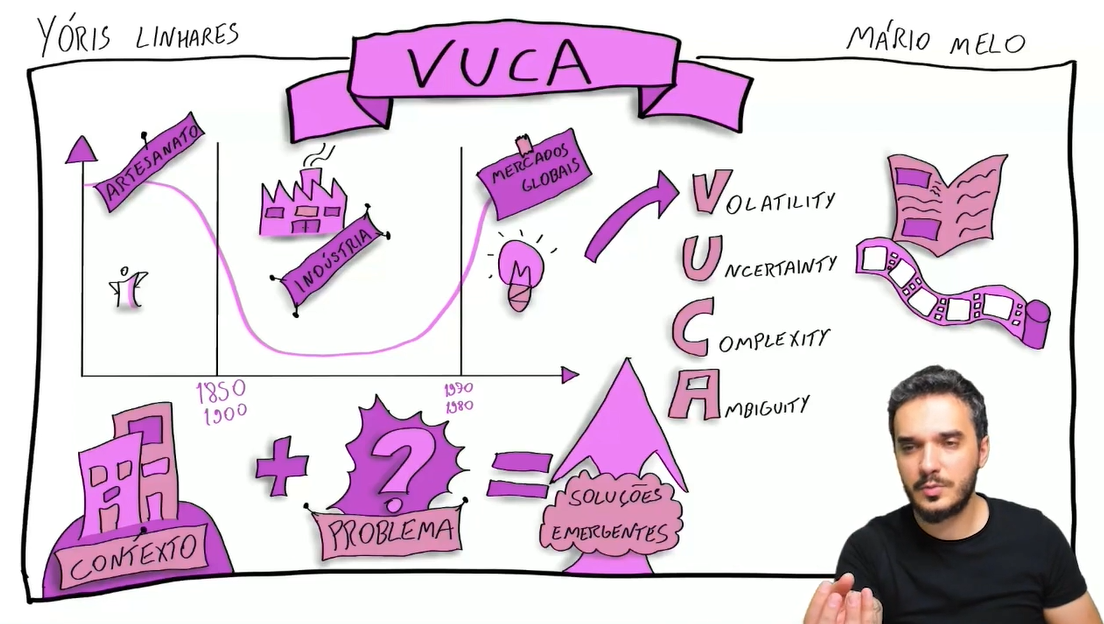 YÓRIS LINHARES
MÁRIO MELO
VUCA
ARTESANATO
INDÚSTRIA
MERCADOS
GLOBAIS
1850
1900
1990
1980
VOLATILITY
UNCERTAINTY
COMPLEXITY
AMBIGUITY
CONTEXTO
+
?
PROBLEMA
=
SOLUÇÕES
EMERGENTES